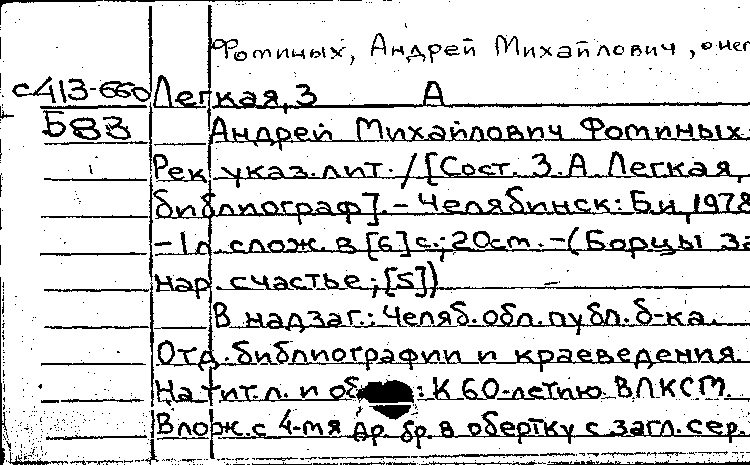 Фоминых, Андрей Михайлович, о нем
с413-660 Легкая, З А
Б83 Андрей Михайлович Фоминых
Рек указ.лит. / [Сост. З.А Легкая,
библиограф]. - Челябинск: Б.и, 1978
- 1л. слож. в [6] с.; 20см. - (Борцы за
нар. счастье; [5])
В надзаг.: Челяб. обл. публ. б-ка.
Отд. библиографии и краеведения
На тит.л. и : К 60-летию ВЛКСМ
Влож. с 4-мя др. бр. в обертку с загл. сер.